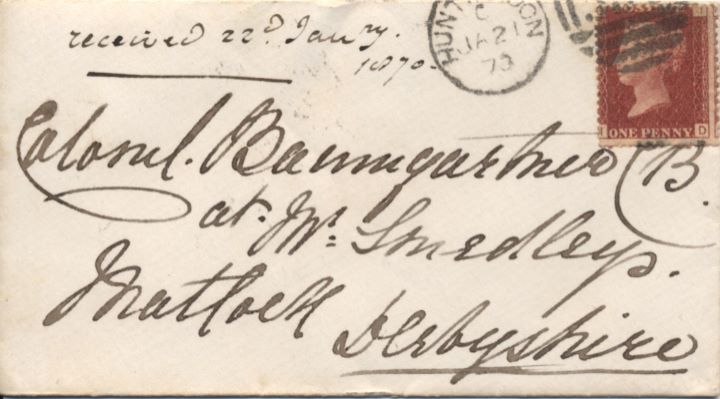 received 22d. Jany.
1870.
HUNTINGDON
C
JA 21
70
D
ONE PENNY
Colonel. Baumgartner (B.
at. Mr. Smedleys.
Matlock
Derbyshire